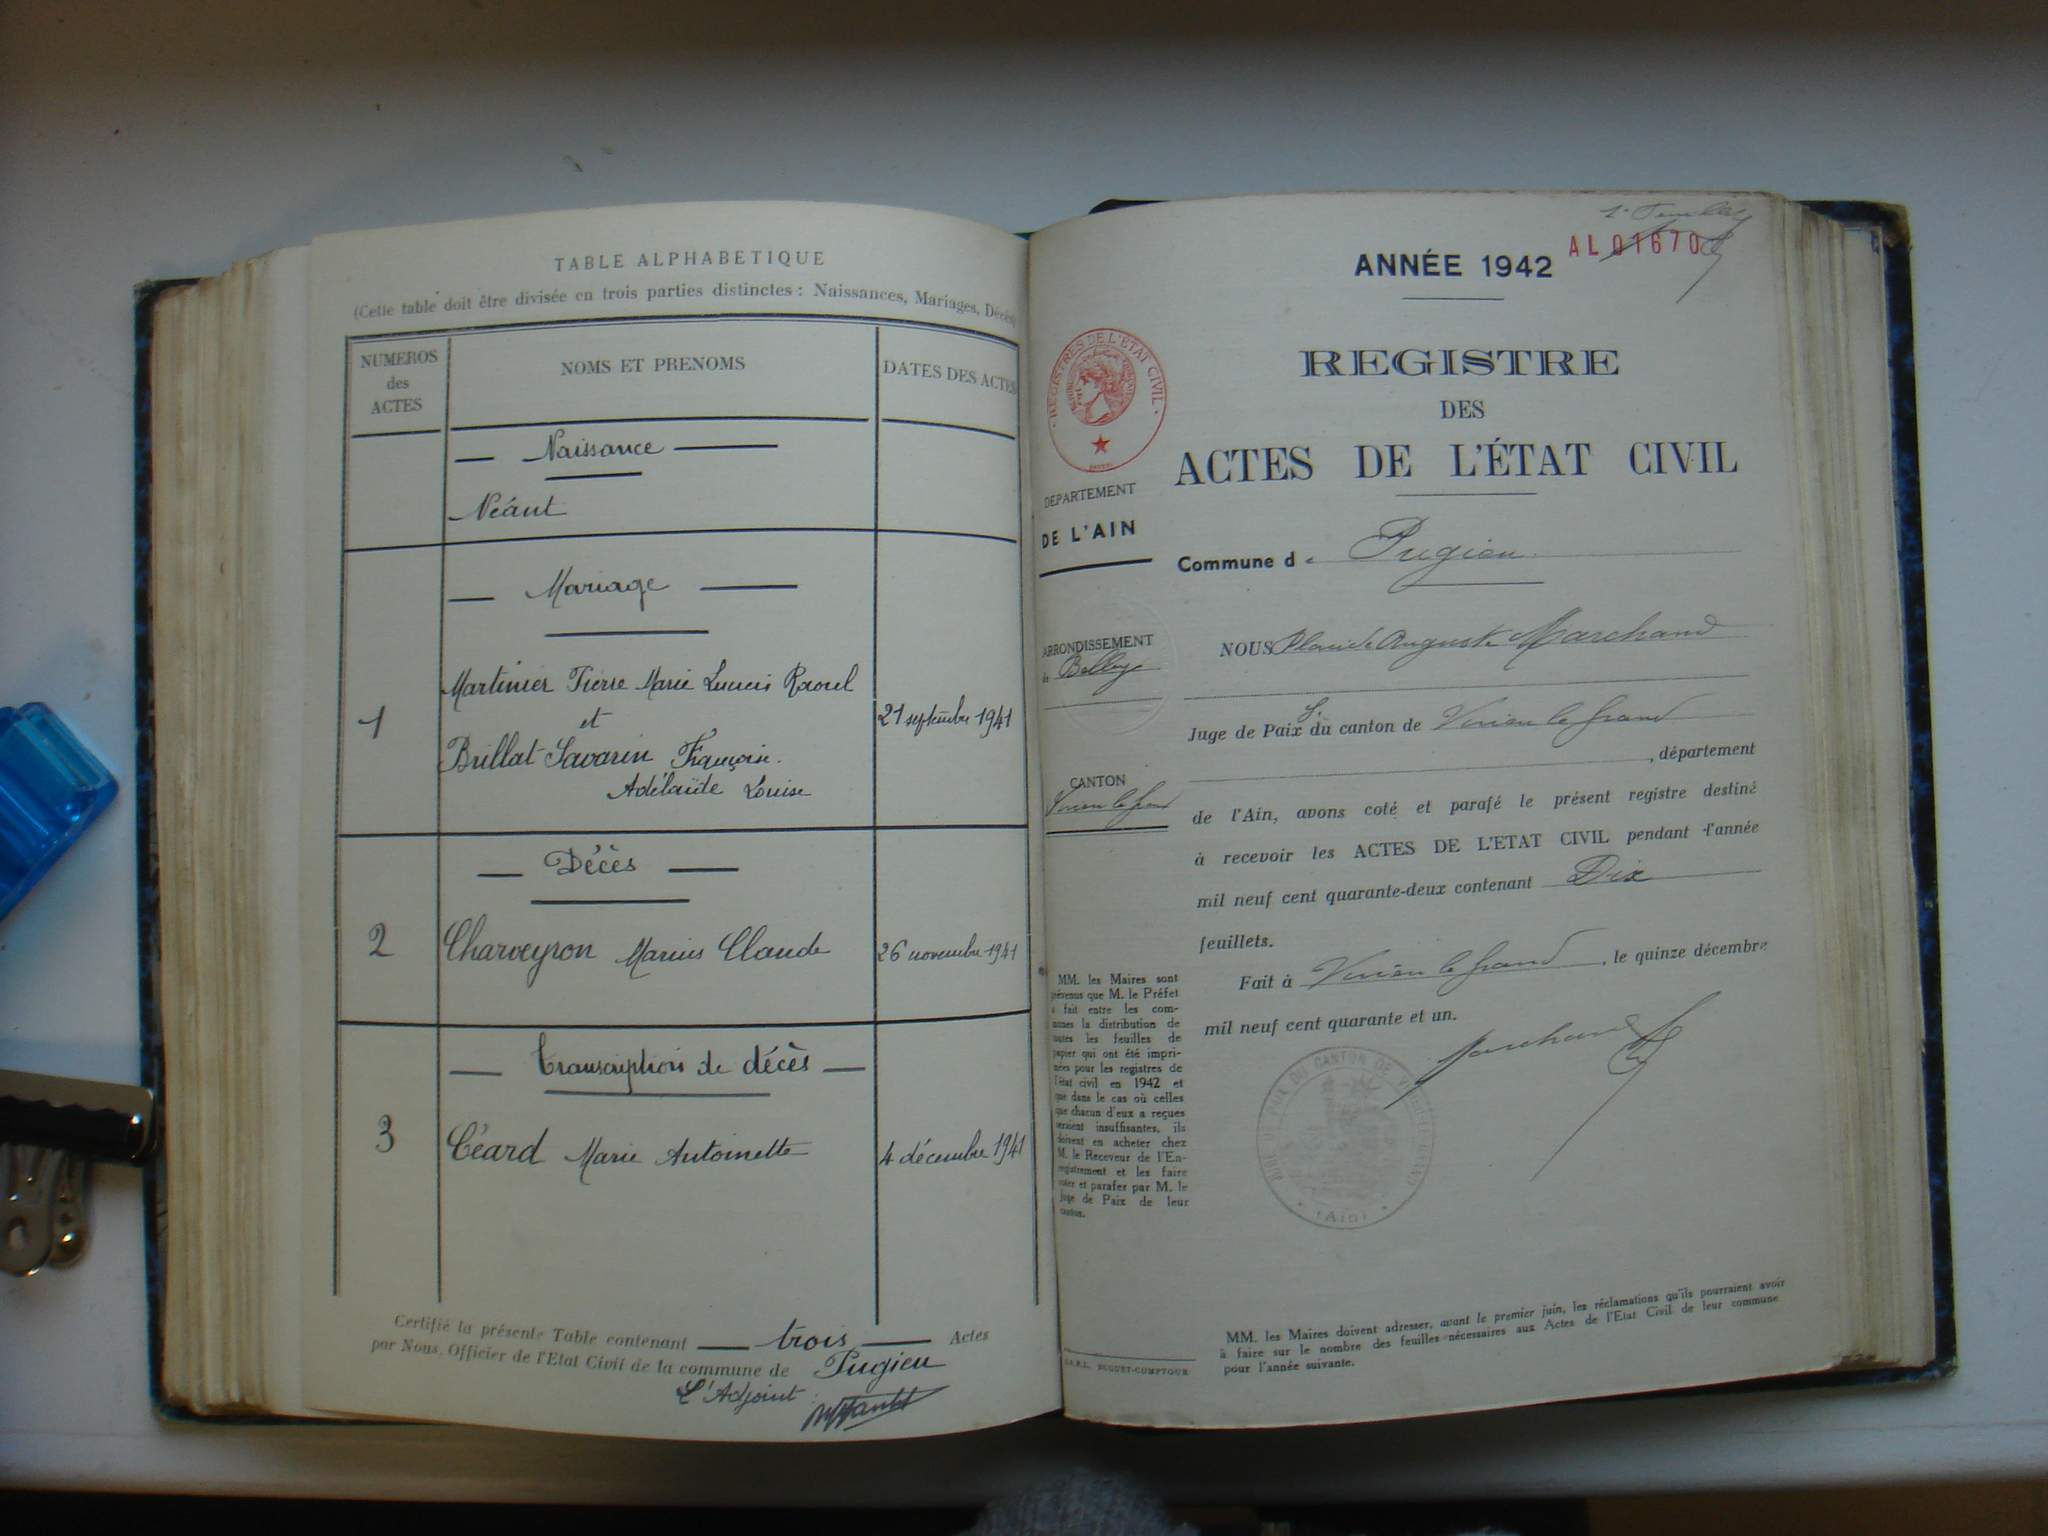 TABLE ALPHABETIQUE
(Cette table doit être divisée en trois parties distinctes : Naissances, Mariages, Décès)
NUMEROS
des
ACTES
NOMS ET PRENOMS
DATES DES ACTES
Naissance
Néant
Mariage
1
Martinier Pierre Marie Lucien Raoul
et
Brillat Savarin Françoise.
Adélaïde Louise
21 septembre 1941
Décès
2
Charveyron Marius Claude
26 novembre 1941
Transcription de décès
3
Céard Marie Antoinette
4 décembre 1941
Certifié la présente Table contenant trois Actes
par Nous, Officier de l'Etat Civil de la commune de Pugieu
L'Adjoint
AL 01670
ANNÉE 1942
REGISTRE
DES
ACTES DE L'ÉTAT CIVIL
REGISTRES DE L'ÉTAT CIVIL
DÉPARTEMENT
DE L'AIN
Commune de Pugieu
ARRONDISSEMENT
de Belley
NOUS Auguste Marchand
Juge de Paix S. du canton de Virieu le Grand
, département
CANTON
Virieu le Grand
de l'Ain, avons coté et parafé le présent registre destiné
à recevoir les ACTES DE L'ETAT CIVIL pendant l'année
mil neuf cent quarante-deux contenant Dix
feuillets.
Fait à Virieu le Grand, le quinze décembre
mil neuf cent quarante et un.
Marchand
MM. les Maires sont
prévenus que M. le Préfet
a fait entre les com-
munes la distribution de
toutes les feuilles de
papier qui ont été impri-
mées pour les registres de
l'état civil en 1942 et
que dans le cas où celles
que chacun d'eux a reçues
seraient insuffisantes, ils
doivent en acheter chez
M. le Receveur de l'En-
registrement et les faire
coter et parafer par M. le
Juge de Paix de leur
canton.
(Ain)
MM. les Maires doivent adresser, avant le premier juin, les réclamations qu'ils pourraient avoir
à faire sur le nombre des feuilles nécessaires aux Actes de l'Etat Civil de leur commune
pour l'année suivante.
S.A.R.L. DUGUET-COMPTOUR